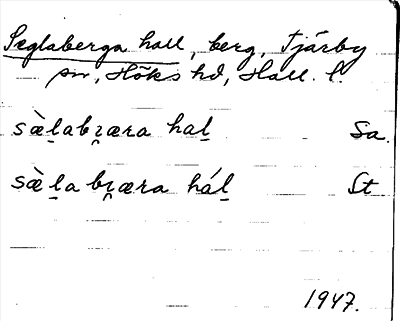 Seglaberga hall, berg, Tjärby
sn, Höks hd, Hall. l.
sæ̀l̠abr̯æra hal̠ Sa.
sæ̀l̠a br̯æra hál̠ St
1947.